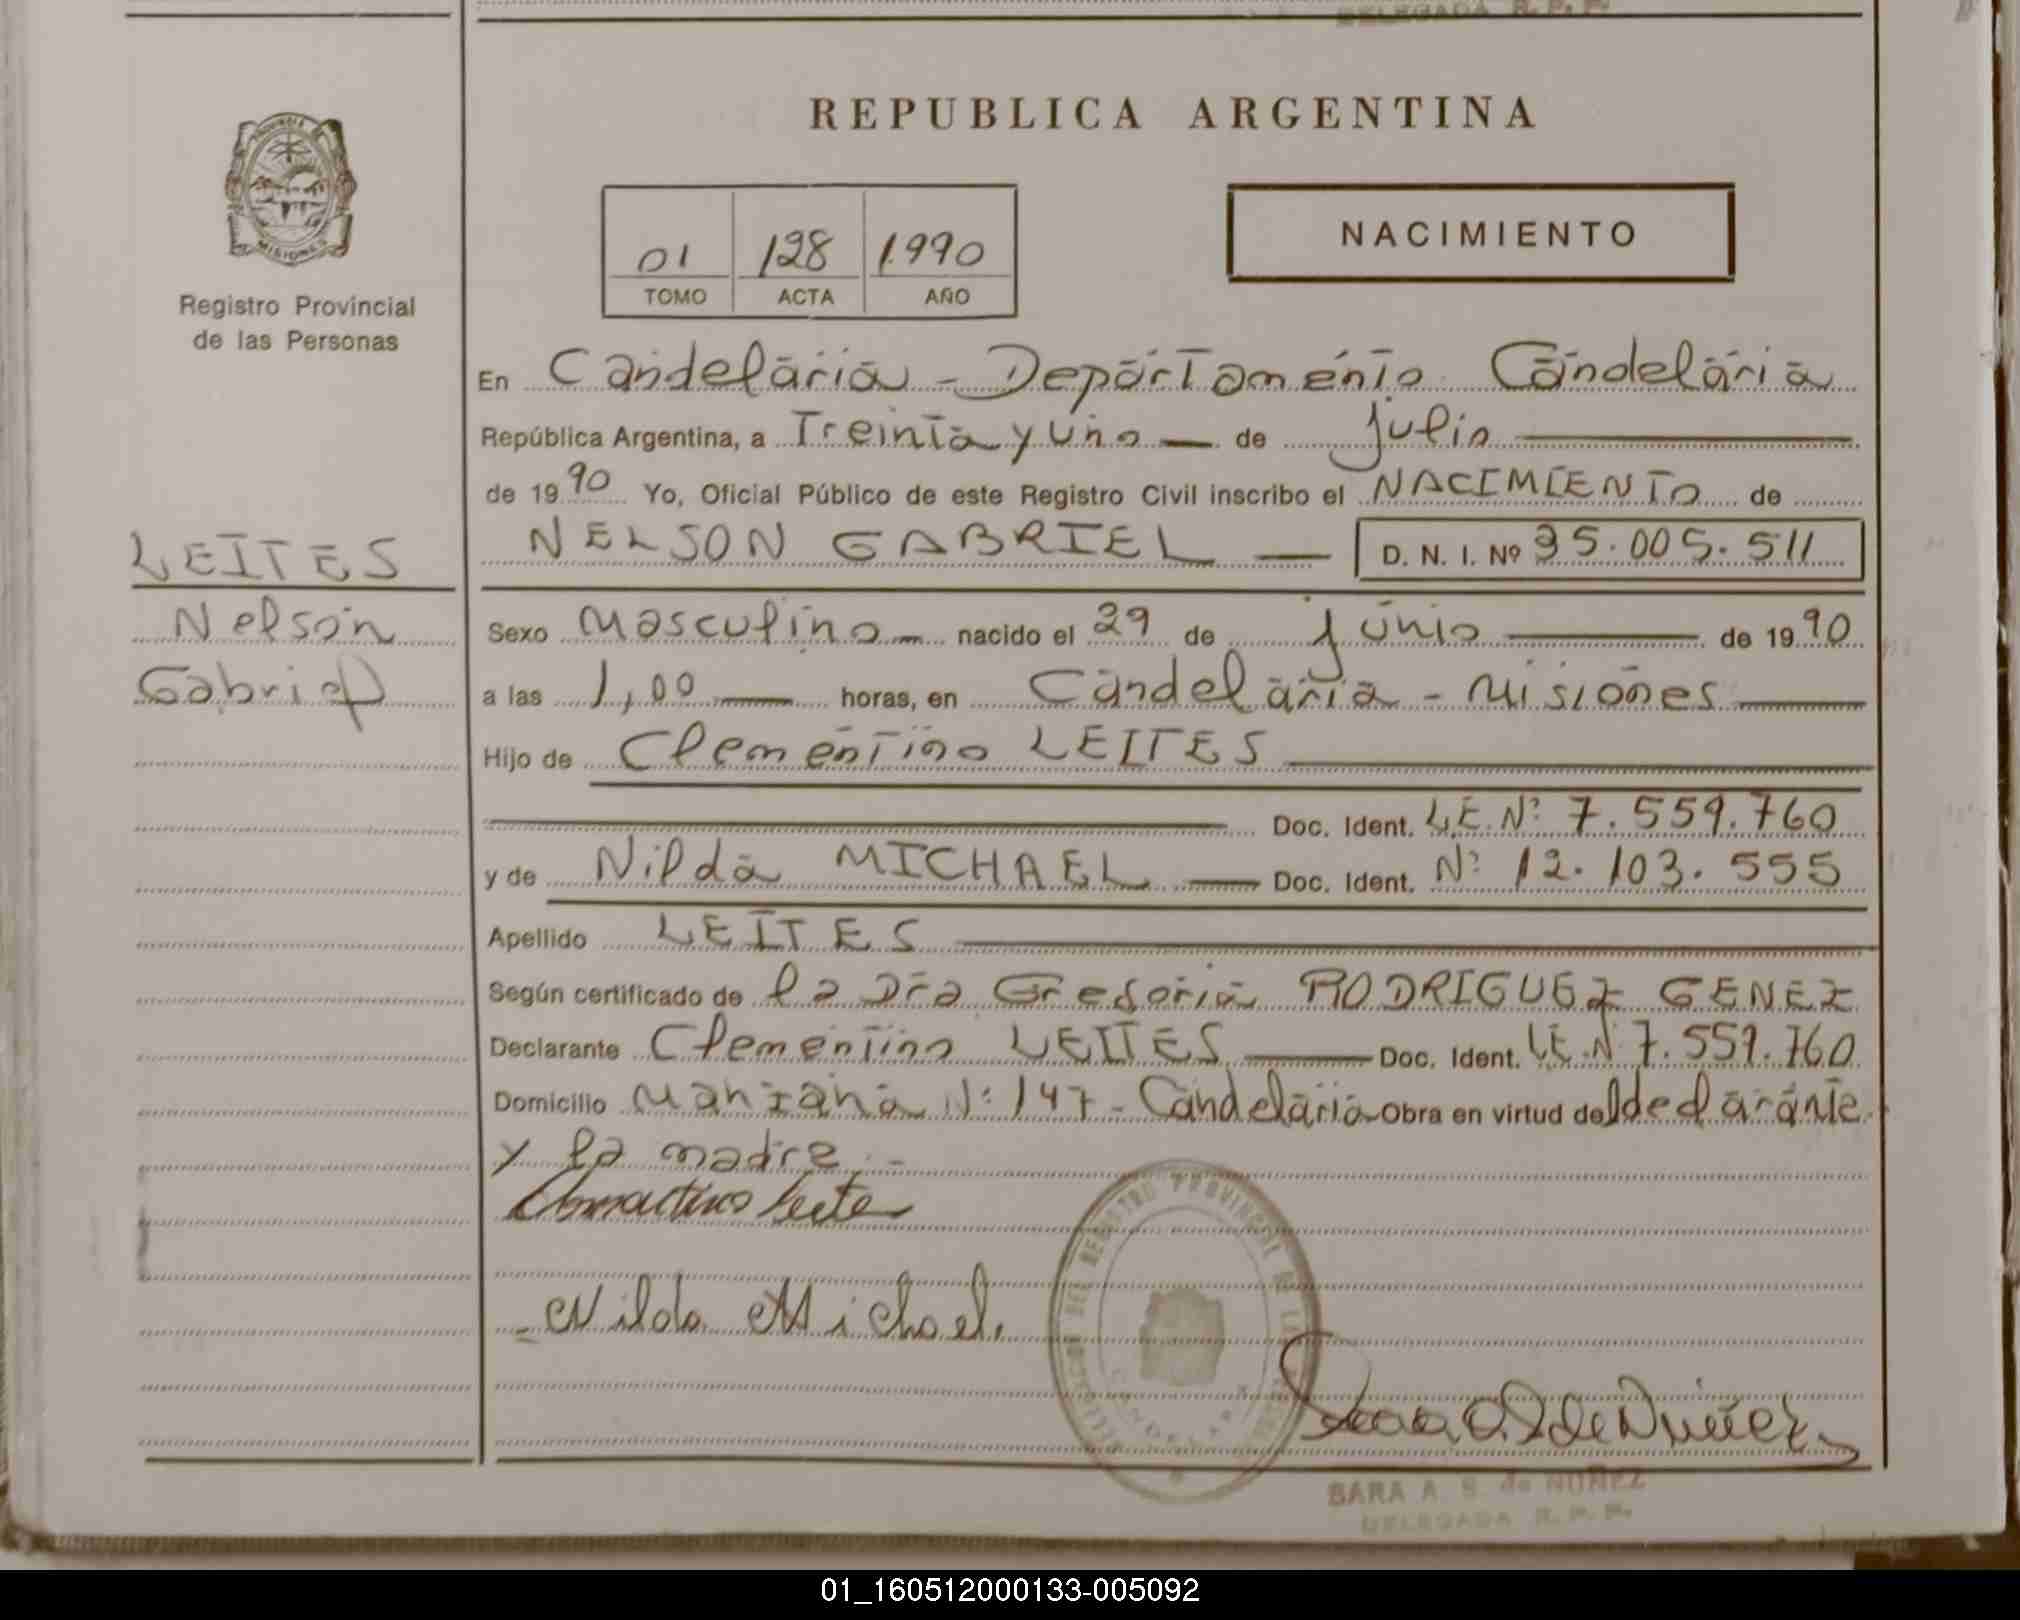 REPUBLICA ARGENTINA
PROVINCIA DE
MISIONES
Registro Provincial
de las Personas
01 128 1.990
TOMO ACTA AÑO
NACIMIENTO
En Candelaria - Departamento Candelaria
República Argentina, a Treinta y uno de julio
de 1990 Yo, Oficial Público de este Registro Civil inscribo el NACIMIENTO de
NELSON GABRIEL D. N. I. Nº 35.005.511
LEITES
Nelson
Gabriel
Sexo Masculino nacido el 29 de junio de 1990
a las 1,00 horas, en Candelaria - Misiones
Hijo de Clementino LEITES
Doc. Ident. L.E. Nº 7.559.760
y de Nilda MICHAEL Doc. Ident. Nº 12.103.555
Apellido LEITES
Según certificado de la Dra Gregoria RODRIGUEZ GENEZ
Declarante Clementino LEITES Doc. Ident. L.E. Nº 7.559.760
Domicilio Manzana Nº 147 - Candelaria Obra en virtud del declarante
y la madre.-
Nilda Michael.
REGISTRO PROVINCIAL DE LAS
CANDELARIA
SARA A. S. de NUÑEZ
DELEGADA R. P. P.
01_160512000133-005092